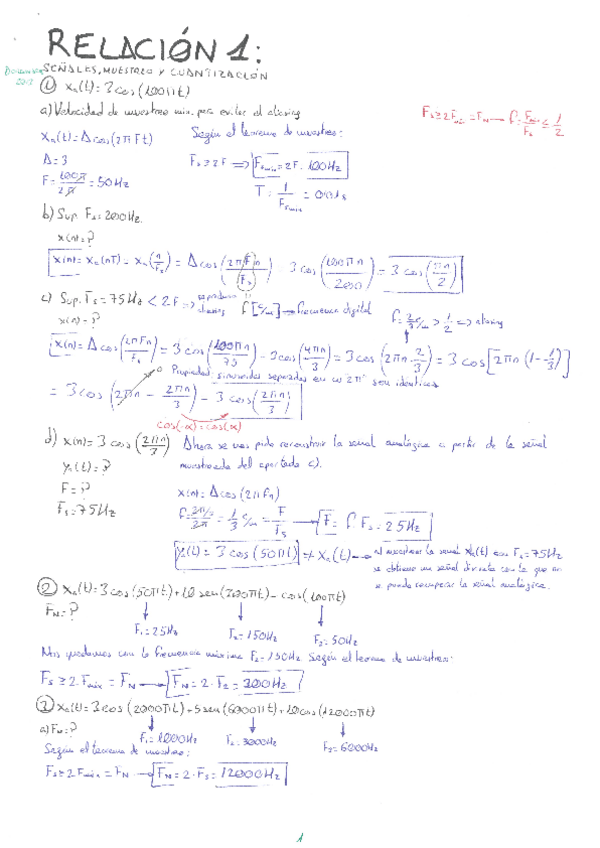 RELACIÓN 1:
SEÑALES, MUESTREO Y CUANTIZACIÓN
① xa(t)=3cos(100πt)
a) Velocidad de muestreo min. para evitar el aliasing
Fs≥2Fmax=FN → f=Fmax/Fs≤1/2
xa(t)=Acos(2πFt)
Según el teorema de muestreo:
A=3
Fs≥2F ⇒ Fsmin=2F=100Hz
F=100π/2π=50Hz
T=1/Fsmin=0'01s
b) Sup. Fs=200Hz.
x(n)=?
x(n)=xa(nT)=xa(n/Fs)=Acos(2πFn/Fs)=3cos(100πn/200)=3cos(πn/2)
c) Sup. Fs=75Hz<2F ⇒ aliasing
f[c/m] → frecuencia digital
f=2/3 c/m>1/2 ⇒ aliasing
x(n)=?
x(n)=Acos(2πFn/Fs)=3cos(100πn/75)=3cos(4πn/3)=3cos(2πn·2/3)=3cos[2πn(1-1/3)]
Propiedad: sinusoides separadas en ω 2π son idénticas
=3cos(2πn-2πn/3)=3cos(2πn/3)
cos(-α)=cos(α)
d) x(n)=3cos(2πn/3) Ahora se nos pide reconstruir la señal analógica a partir de la señal
muestreada del apartado c).
ya(t)=?
F=?
x(n)=Acos(2πfn)
Fs=75Hz
f=2π/3/2π=1/3 c/m=F/Fs → F=f·Fs=25Hz
ya(t)=3cos(50πt) ≠ xa(t) → al muestrear la señal xa(t) con Fs=75Hz
se obtiene una señal distinta con la que no
se puede recuperar la señal analógica.
② xa(t)=3cos(50πt)+10sen(300πt)-cos(100πt)
FN=?
F1=25Hz
F2=150Hz
F3=50Hz
Nos quedamos con la frecuencia máxima F2=150Hz. Según el teorema de muestreo:
Fs≥2·Fmax=FN → FN=2·F2=300Hz
③ xa(t)=3cos(2000πt)+5sen(6000πt)+10cos(12000πt)
a) FN=?
F1=1000Hz
F2=3000Hz
F3=6000Hz
Según el teorema de muestreo:
Fs≥2Fmax=FN → FN=2·F3=12000Hz
1